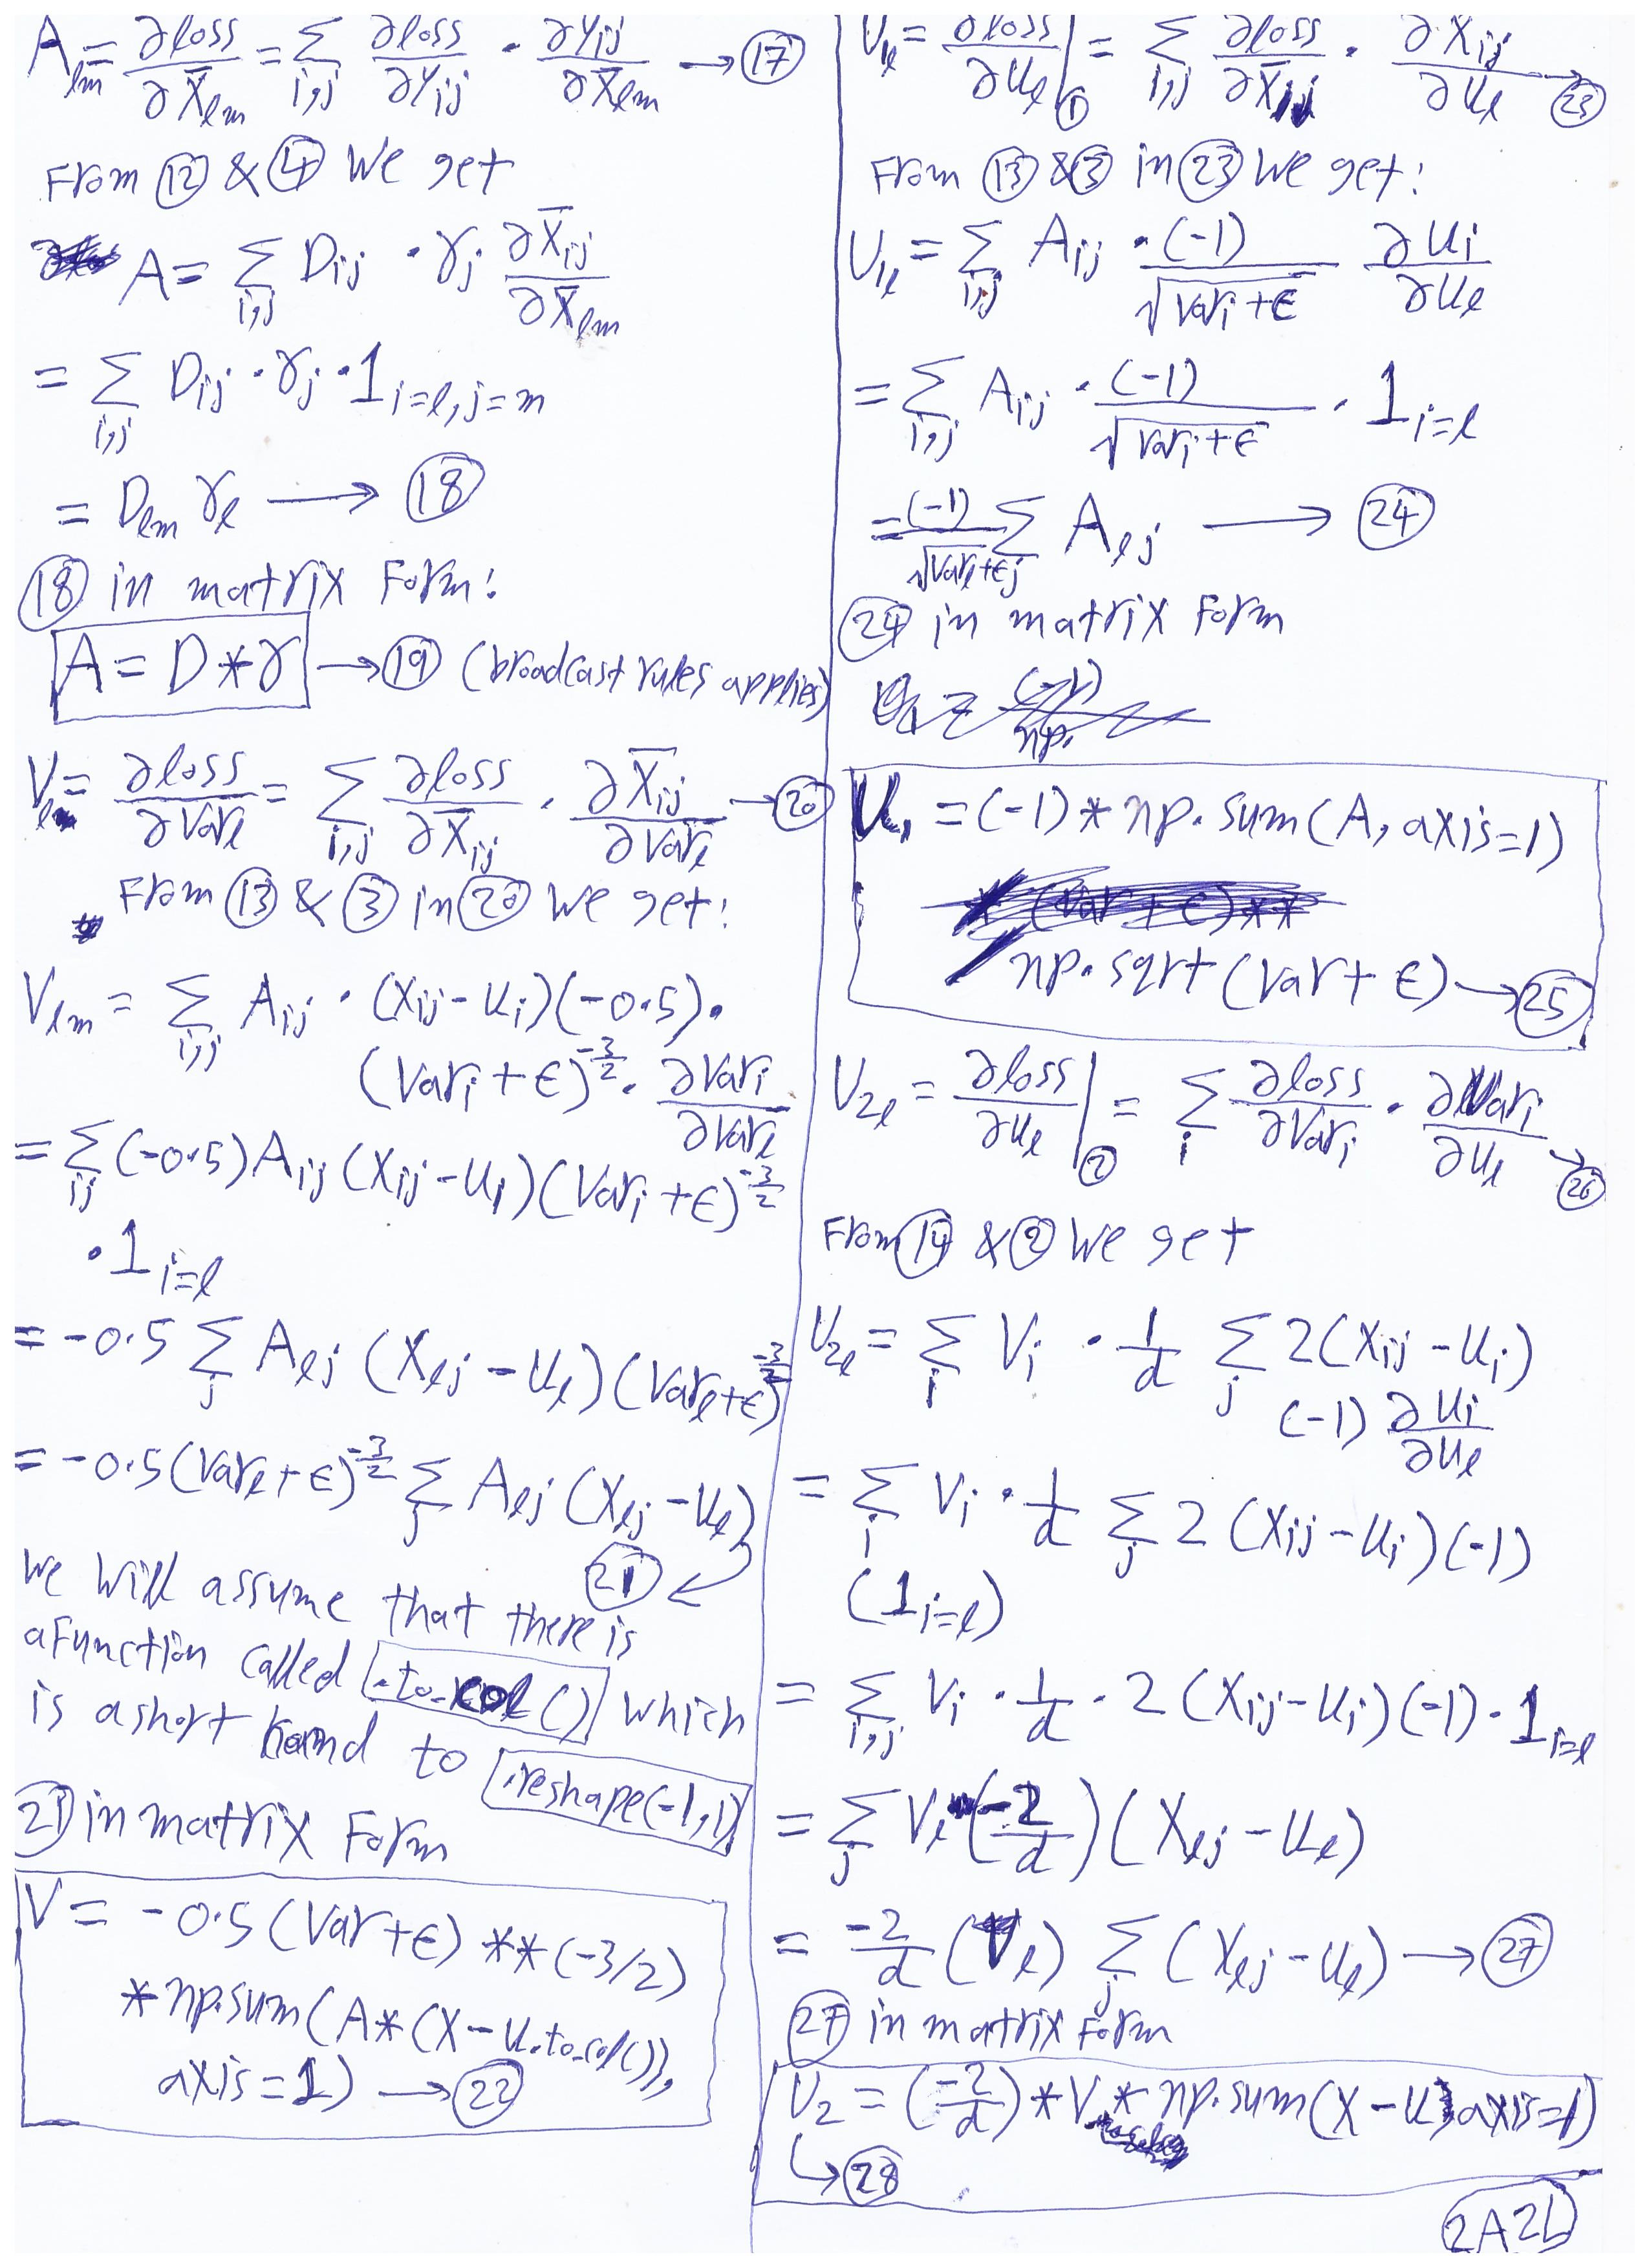 A_{lm} = ∂loss/∂X̄_{lm} = Σ_{i,j} ∂loss/∂Y_{ij} · ∂Y_{ij}/∂X̄_{lm} → (17)
From (12) & (4) We get
A = Σ_{i,j} D_{ij} · γ_j ∂X̄_{ij}/∂X̄_{lm}
= Σ_{i,j} D_{ij} · γ_j · 1_{i=l, j=m}
= D_{lm} γ_l → (18)
(18) in matrix Form:
A = D * γ → (19) (broadcast rules applies)
V_l = ∂loss/∂Var_l = Σ_{i,j} ∂loss/∂X̄_{ij} · ∂X̄_{ij}/∂Var_l → (20)
From (13) & (3) in (20) We get:
V_{lm} = Σ_{i,j} A_{ij} · (X_{ij} - u_i)(-0.5) ·
(Var_i + ϵ)^{-3/2} · ∂Var_i/∂Var_l
= Σ_{ij} (-0.5) A_{ij} (X_{ij} - u_i)(Var_i + ϵ)^{-3/2}
· 1_{i=l}
= -0.5 Σ_j A_{lj} (X_{lj} - u_l)(Var_l + ϵ)^{-3/2}
= -0.5 (Var_l + ϵ)^{-3/2} Σ_j A_{lj} (X_{lj} - u_l)
(21)
we will assume that there is
a Function called .to_col() which
is a short hand to .reshape(-1,1)
(21) in matrix Form
V = -0.5 (Var + ϵ) ** (-3/2)
* np.sum(A * (X - u.to_col()),
axis=1) → (22)
U_{1l} = ∂loss/∂u_l |_(1) = Σ_{i,j} ∂loss/∂X̄_{ij} · ∂X_{ij}/∂u_l → (23)
From (13) & (3) in (23) We get:
U_{1l} = Σ_{i,j} A_{ij} · (-1)/√(Var_i + ϵ) ∂u_i/∂u_l
= Σ_{i,j} A_{ij} · (-1)/√(Var_i + ϵ) · 1_{i=l}
= (-1)/√(Var_l + ϵ) Σ_j A_{lj} → (24)
(24) in matrix Form
U_1 = (-1) * np.sum(A, axis=1)
/ np.sqrt(Var + ϵ) → (25)
U_{2l} = ∂loss/∂u_l |_(2) = Σ_i ∂loss/∂Var_i · ∂Var_i/∂u_l → (26)
From (14) & (2) We get
U_{2l} = Σ_i V_i · 1/d Σ_j 2(X_{ij} - u_i)
(-1) ∂u_i/∂u_l
= Σ_i V_i · 1/d Σ_j 2(X_{ij} - u_i)(-1)
(1_{i=l})
= Σ_{i,j} V_i · 1/d · 2(X_{ij} - u_i)(-1) · 1_{i=l}
= Σ_j V_l (-2/d)(X_{lj} - u_l)
= -2/d (V_l) Σ_j (X_{lj} - u_l) → (27)
(27) in matrix Form
U_2 = (-2/d) * V * np.sum(X - u, axis=1)
↳ (28)
2A2L